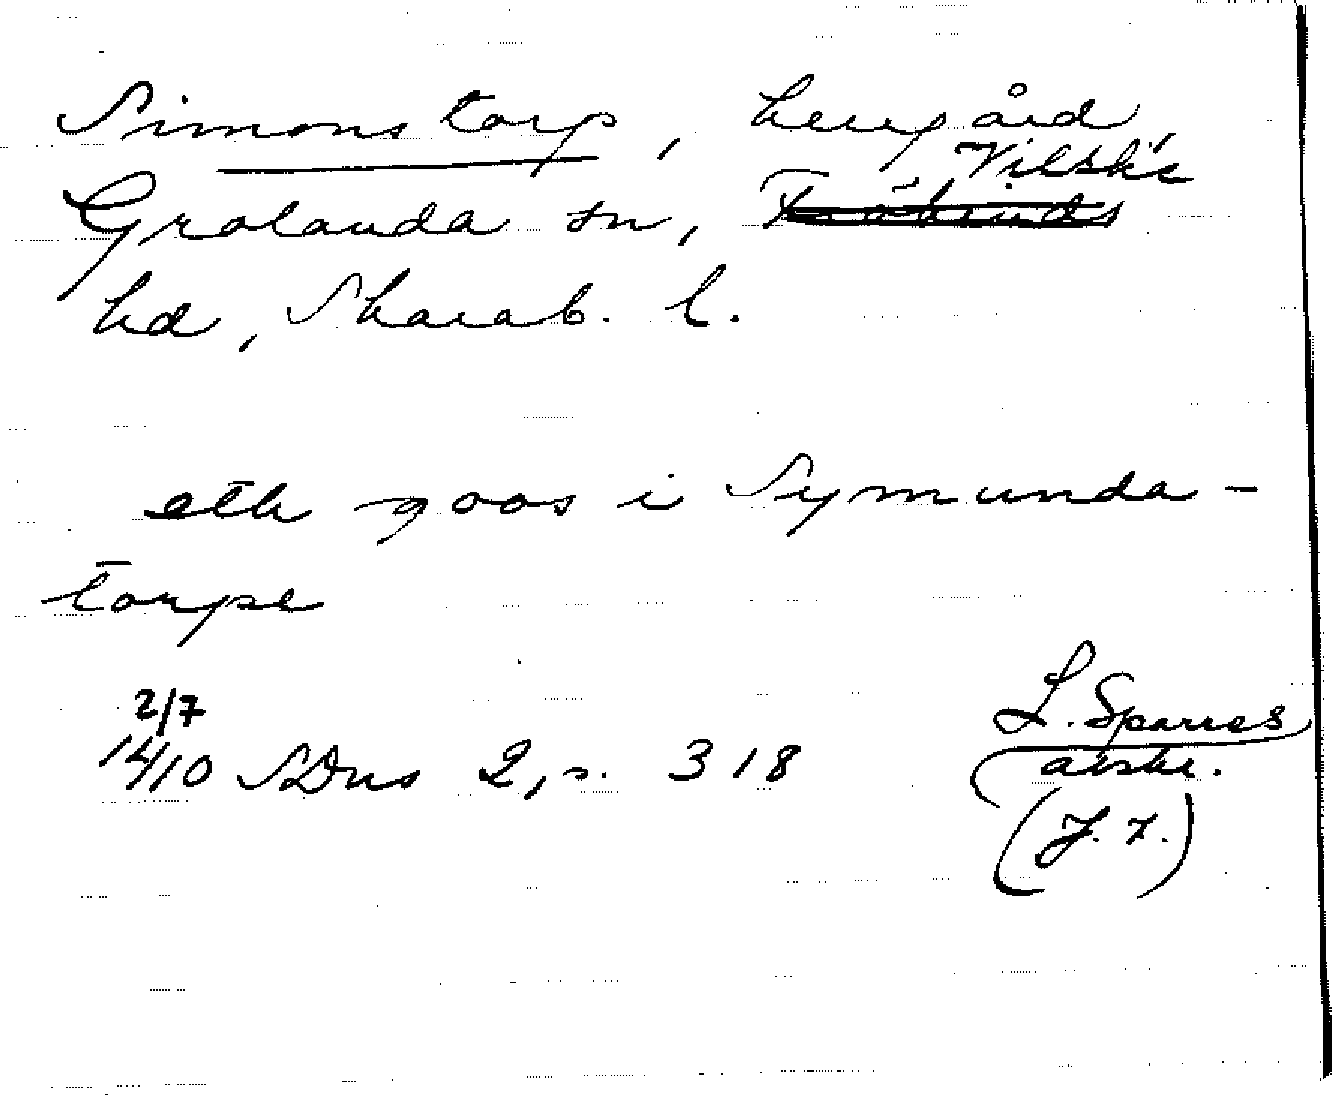 Simonstorp, herrgård,
Grolanda sn, Vilske
hd, Skarab. l.
eth goos i Symunda-
torpe
2/7
14/10 SDns 2, s. 318
L. Sparres
avskr.
(J. F.)